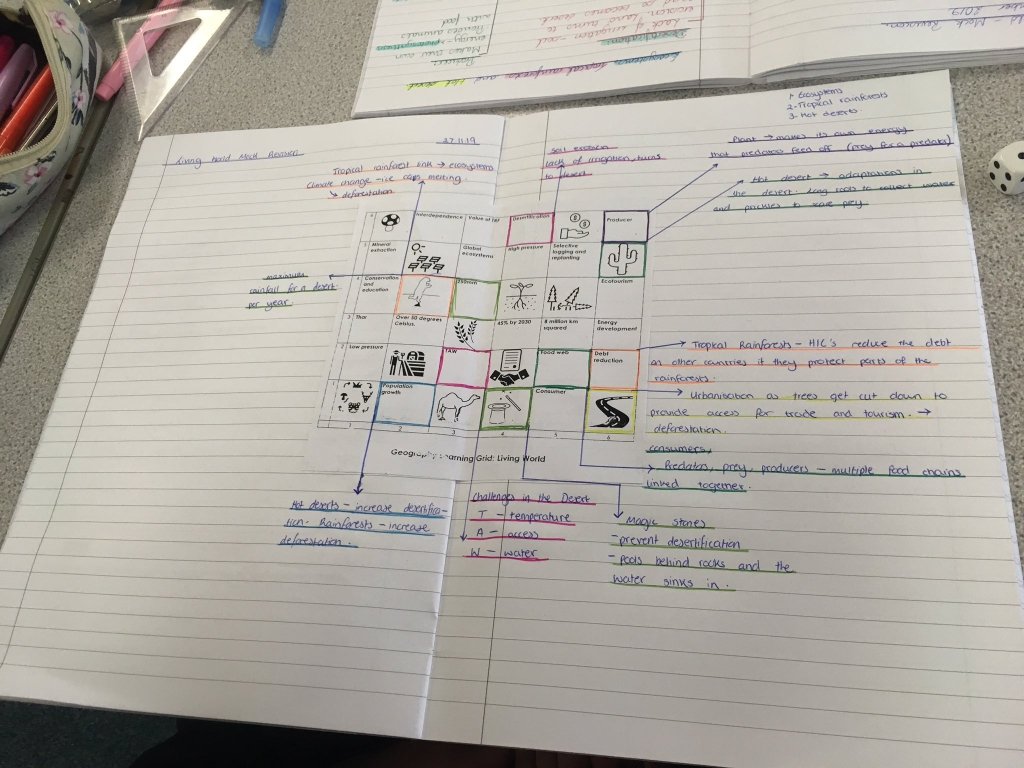 Mock Revision
2019
Living World Mock Revision
27.11.19
1- Ecosystems
2- Tropical rainforests
3- Hot deserts
Tropical rainforest sink → ecosystems
Climate change - ice caps melting.
↳ deforestation
soil erosion
lack of irrigation, turns
to desert
Plant → makes its own energy
that predators feed off (prey for a predator)
Hot desert → adaptations in
the desert. Long roots to collect water
and prickles to scare prey.
maximum
rainfall for a desert
per year.
6 Interdependence Value of TRF Desertification Producer
5 Mineral extraction Global ecosystems High pressure Selective logging and replanting
4 Conservation and education 250mm Ecotourism
3 Thar Over 50 degrees Celsius. 45% by 2030 8 million km squared Energy development
2 Low pressure TAW Food web Debt reduction
1 Population growth Consumer
1 2 3 4 5 6
Geography Learning Grid: Living World
Tropical Rainforests - HIC's reduce the debt
on other countries if they protect parts of the
rainforests.
Urbanisation as trees get cut down to
provide access for trade and tourism. →
deforestation.
consumers,
Predators, prey, producers - multiple food chains
linked together.
Hot deserts - increase desertifica-
tion. Rainforests - increase
deforestation.
Challenges in the Desert
T - temperature
A - access
W - water
Magic stones
- prevent desertification
- pools behind rocks and the
water sinks in.